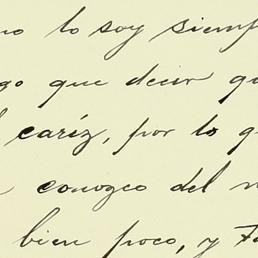 no lo soy siemp
go que decir qu
l cariz, por lo q
conozco del m
bien poco, y Fa